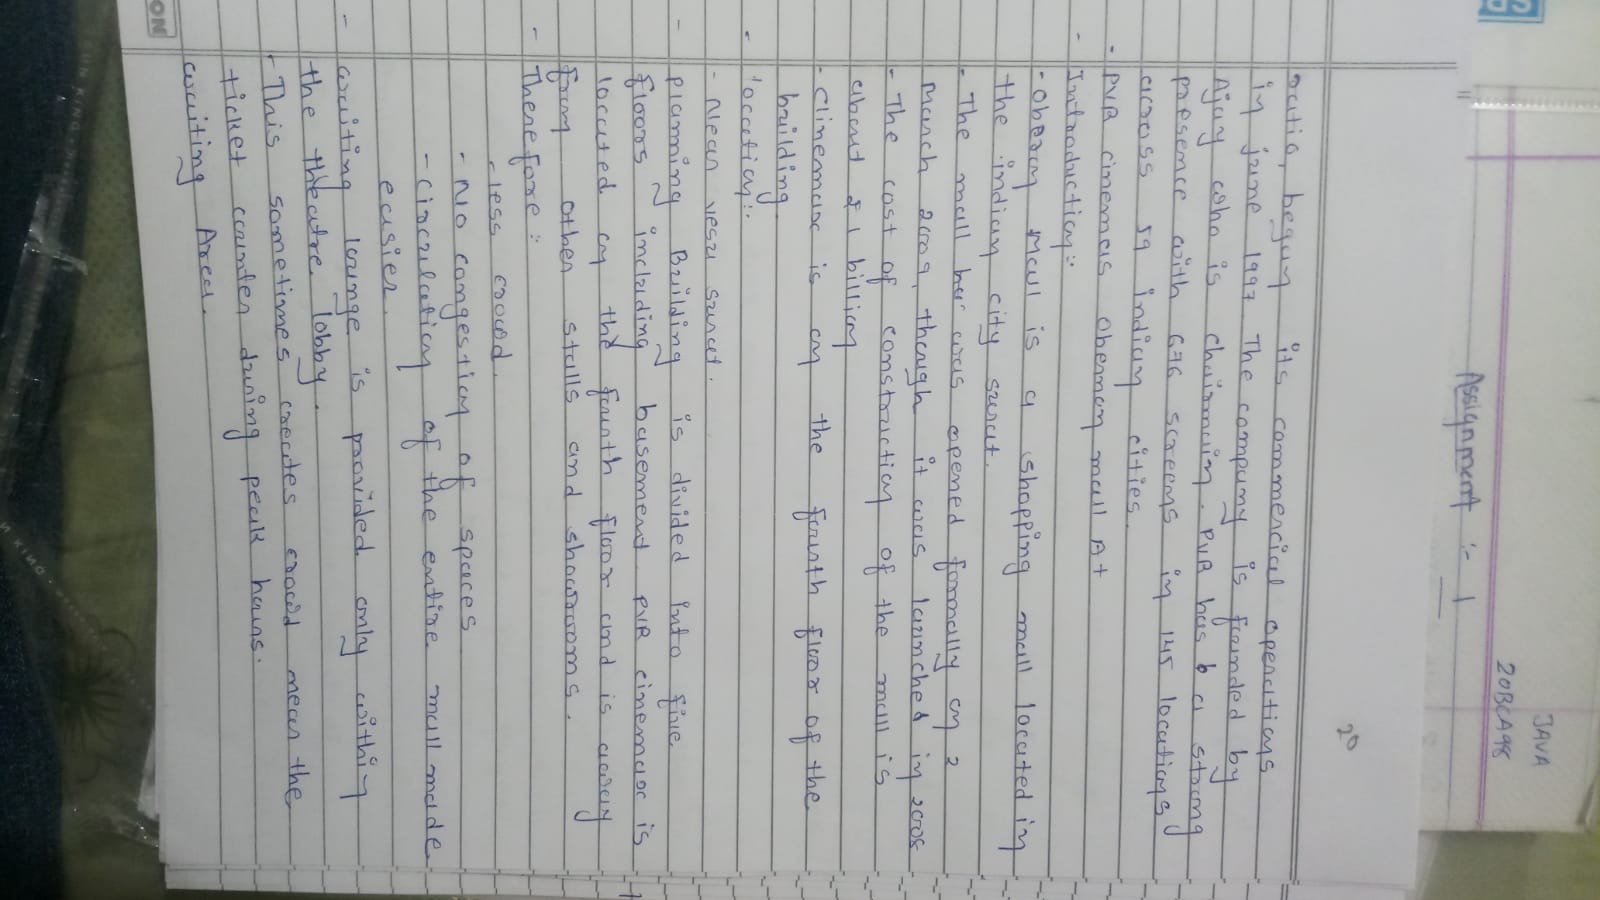 JAVA
20BCA98
Assignment :- 1
20
ratio, begun its commercial operations
in june 1997 The company is founded by
Ajay who is chairmain. PVR has a strong
presence with 676 screens in 145 locations
across 59 indian cities.
- PVR cinemas Oberon mall At
- Introduction:-
- Oberon Mall is a shopping mall located in
the indian city surat.
- The mall was opened formally on 2
March 2009, though it was launched in 2008
- The cost of construction of the mall is
about £ 1 billion
- Clinemax is on the fourth floor of the
building
- location:-
- Near vesu surat.
- planning Building is divided into five
floors including basement PVR cinemax is
located on the fourth floor and is away
from other stalls and showrooms.
- Therefore :-
- less crowd.
- No congestion of spaces
- Circulation of the entire mall made
easier.
- waiting lounge is provided only within
the theatre lobby.
- This sometimes creates crowd near the
ticket counter during peak hours.
waiting Area.
ON